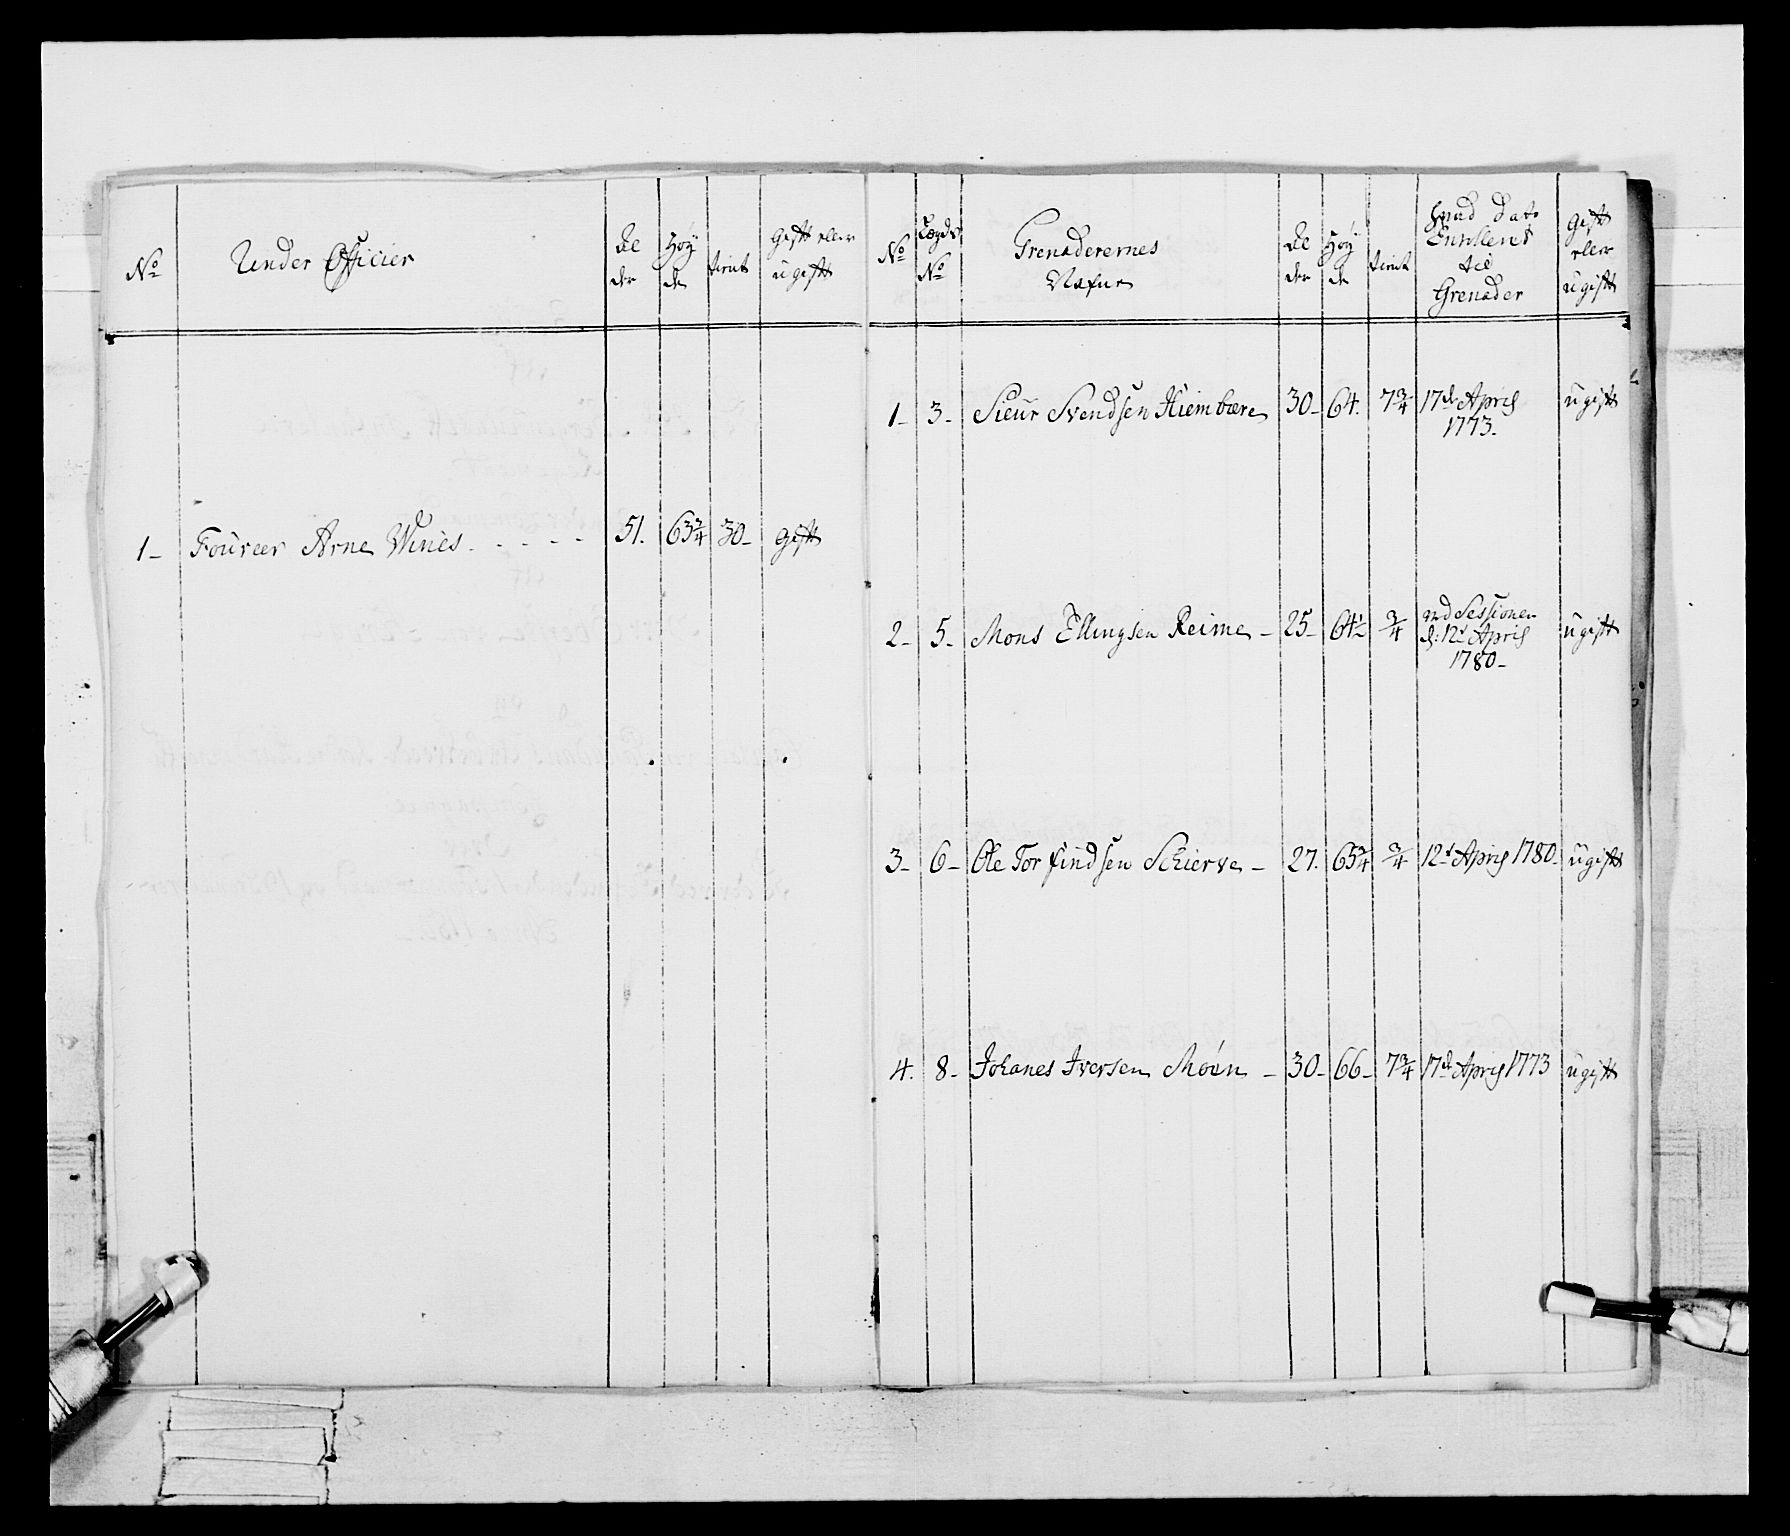 No
Under Officier
Al
der
Høy
de
tient
gift eller
ugift
1- Foureer Arne Wines. - - - - 51. 63 3/4 30- gift
No
Lægds
No
Grenaderernes
Nafne
Al
der
Høy
de
tient
til
Grenader
gift
eller
ugift
1- 3- Sieur Svendsen Kiembære 30- 64. 7 3/4 17d April ugift
1773-
2- 5- Mons Ellingsen Reime- 25- 64 1/2 3/4 ved Sessionen ugift
d: 12d April
1780-
3- 6- Ole Torfindsen Schierve- 27. 65 3/4 3/4 12d April 1780- ugift
4. 8- Johanes Iversen Moën - 30- 66- 7 3/4 17d April 1773 ugift